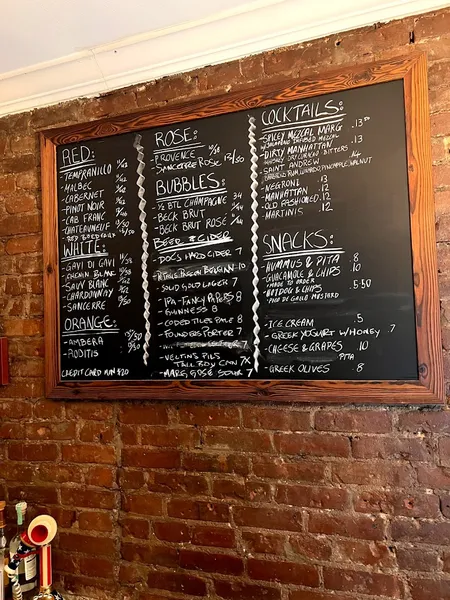 RED:
- TEMPRANILLO
- MALBEC
- CABERNET
- PINOT NOIR
- CAB FRANC
- CHATEAUNEUF
- RED BORDEAUX
WHITE:
- GAVI DI GAVI
- CHENIN BLANC
- SAUV BLANC
- CHARDONNAY
- SANCERRE
ORANGE:
- AMBERA
- RODITIS
CREDIT CARD MIN $20
ROSE:
- PROVENCE
- SANCERRE ROSE 13/50
BUBBLES:
- 1/2 BTL CHAMPAGNE 34
- BECK BRUT
- BECK BRUT ROSE
BEER & CIDER
- DOC'S HARD CIDER 7
10
- SOLID GOLD LAGER 7
- IPA - FANCY PAPERS 8
- GUINNESS 8
- CODED TILES PALE 8
- FOUNDERS PORTER 7
- VELTINS PILS
TALL BOY CAN 7
- MARG GOSE SOUR 7
COCKTAILS:
- SPICY MEZCAL MARG .13
JALAPENO INFUSED MEZCAL
- DIRTY MANHATTAN .13
WHISKEY DRY CURACAO BITTERS
- SAINT ANDREW 14
RUM, LEMON, PINEAPPLE, WALNUT
- NEGRONI .13
- MANHATTAN .12
- OLD FASHIONED .12
- MARTINIS .12
SNACKS:
- HUMMUS & PITA .8
- GUACAMOLE & CHIPS .10
- MADE TO ORDER
- HOTDOG & CHIPS 5.50
- PICO DE GALLO MUSTARD
- ICE CREAM .5
- GREEK YOGURT W/HONEY 7
- CHEESE & GRAPES .10
PITA
- GREEK OLIVES .8